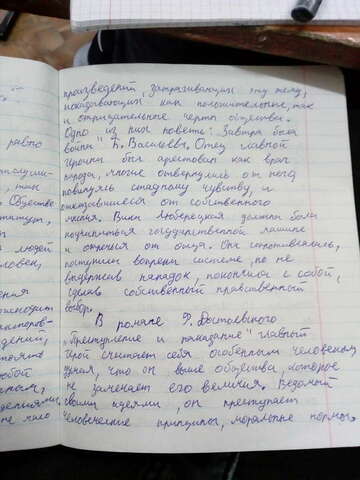 произведений, затрагивающих эту тему,
показывающих как положительные, так
и отрицательные черты общества.
Одно из них повести: Завтра была
война" Б. Васильев. Отец главной
героини был арестован как враг
народа, многие отвернулись от него
повинуясь стадному чувству, и
отказавшиеся от собственного
мнения. Вика Люберецкая должна была
подчиниться государственной машине
и отречься от отца. Она сопротивлялась,
поступила вопреки системе, но не
выдержав нападок, покончила с собой,
сделав собственный нравственный
выбор.
В романе Ф. Достоевского
"Преступление и наказание" главный
герой считает себя особенным человеком,
думая, что он выше общества, которое
не замечает его величия. Ведомый
своими идеями, он преступает
человеческие принципы, моральные нормы.
равно
людей
человек,
не мало